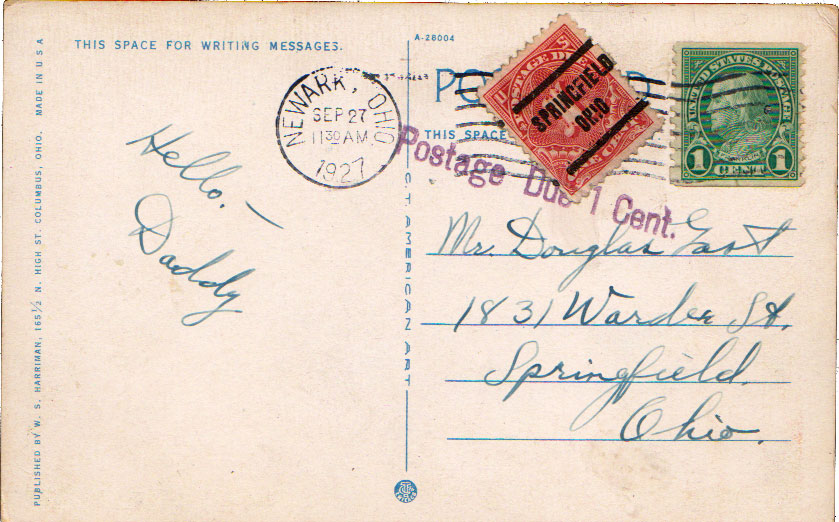 THIS SPACE FOR WRITING MESSAGES.
A-28004
NEWARK, OHIO
SEP 27
11 30 AM
1927
Hello!
Daddy
PUBLISHED BY W. S. HARRIMAN, 165 1/2 N. HIGH ST. COLUMBUS, OHIO. MADE IN U S A
C.T. AMERICAN ART
PO
D
THIS SPACE
POSTAGE DUE
SPRINGFIELD
OHIO
ONE CENT
UNITED STATES POSTAGE
1 1
Postage Due 1 Cent.
Mr. Douglas
1831 Warder St.
Springfield.
Ohio.